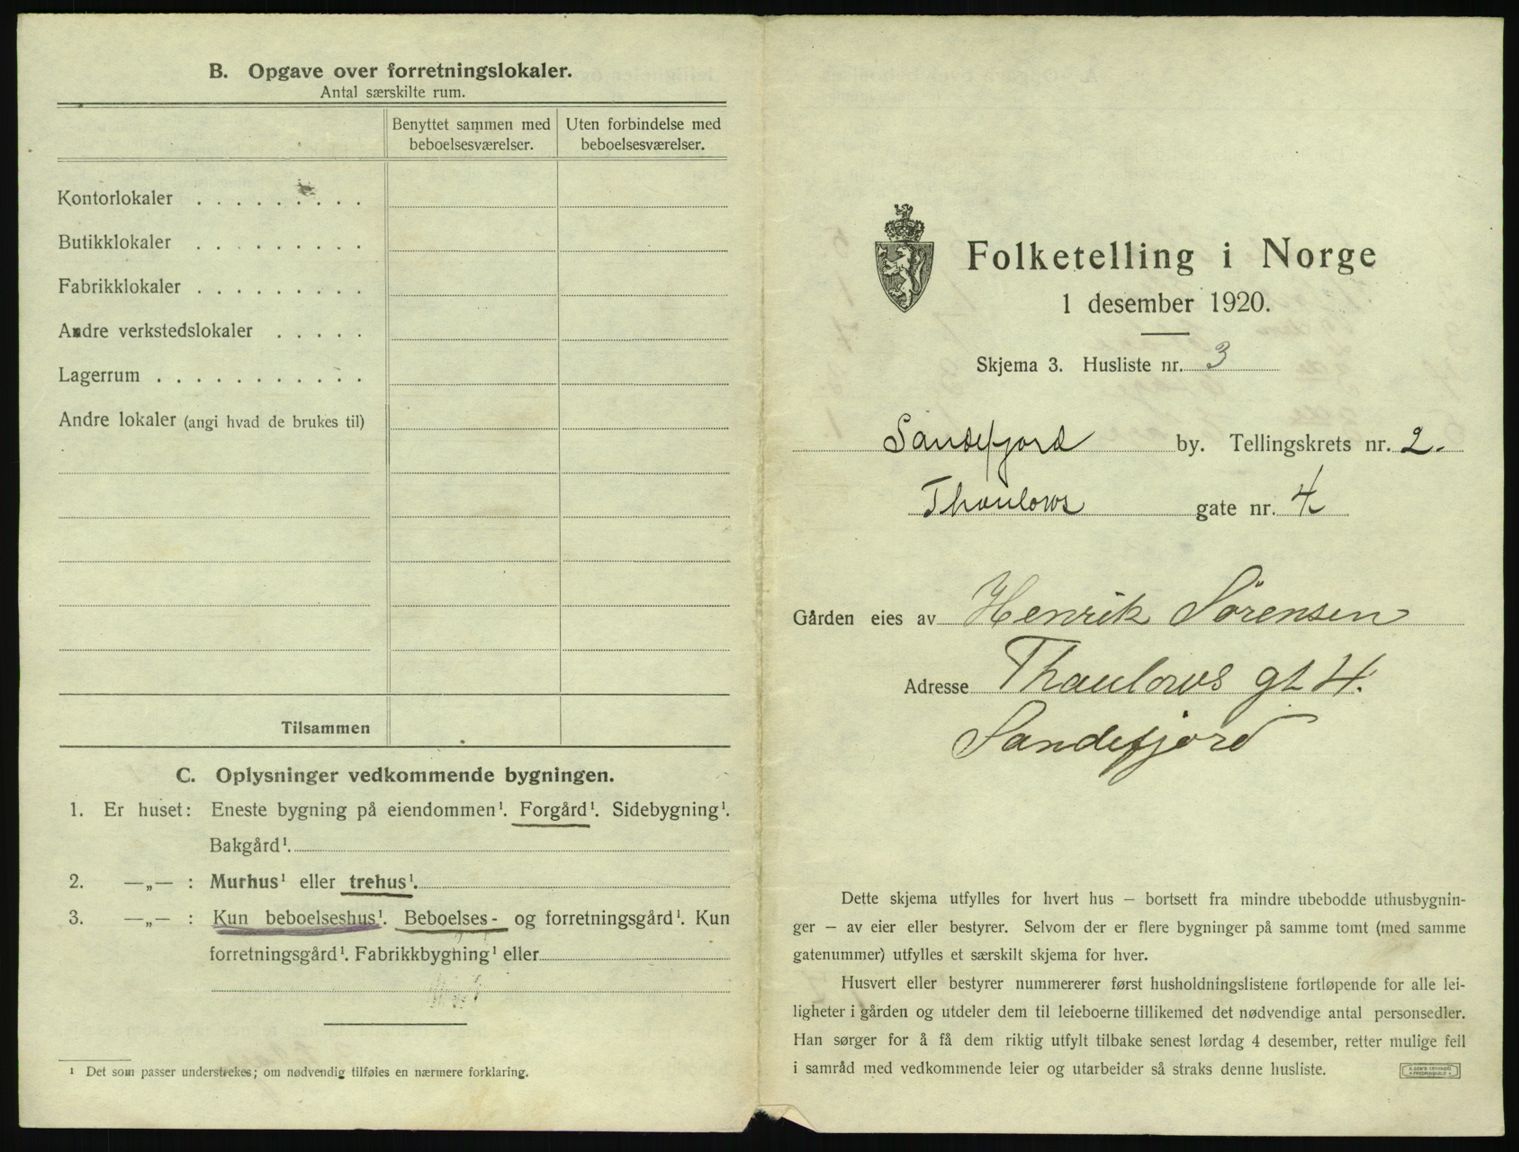 B. Opgave over forretningslokaler.
Antal særskilte rum.
Benyttet sammen med beboelsesværelser.
Uten forbindelse med beboelsesværelser.
Kontorlokaler . . . . . . . . .
Butikklokaler . . . . . . . . .
Fabrikklokaler . . . . . . . . .
Andre verkstedslokaler . . . . .
Lagerrum . . . . . . . . . . .
Andre lokaler (angi hvad de brukes til)
Tilsammen
C. Oplysninger vedkommende bygningen.
1. Er huset: Eneste bygning på eiendommen¹. Forgård¹. Sidebygning¹.
Bakgård¹.
2. —„— : Murhus¹ eller trehus¹.
3. —„— : Kun beboelseshus¹. Beboelses- og forretningsgård¹. Kun
forretningsgård¹. Fabrikkbygning¹ eller
¹ Det som passer understrekes; om nødvendig tilføies en nærmere forklaring.
Folketelling i Norge
1 desember 1920.
Skjema 3. Husliste nr. 3
Sandefjord by. Tellingskrets nr. 2.
Thaulows gate nr. 4
Gården eies av Henrik Sørensen
Adresse Thaulows gt 4.
Sandefjord
Dette skjema utfylles for hvert hus — bortsett fra mindre ubebodde uthusbygnin-
ger — av eier eller bestyrer. Selvom der er flere bygninger på samme tomt (med samme
gatenummer) utfylles et særskilt skjema for hver.
Husvert eller bestyrer nummererer først husholdningslistene fortløpende for alle lei-
ligheter i gården og utdeler dem til leieboerne tillikemed det nødvendige antal personsedler.
Han sørger for å få dem riktig utfylt tilbake senest lørdag 4 desember, retter mulige feil
i samråd med vedkommende leier og utarbeider så straks denne husliste.